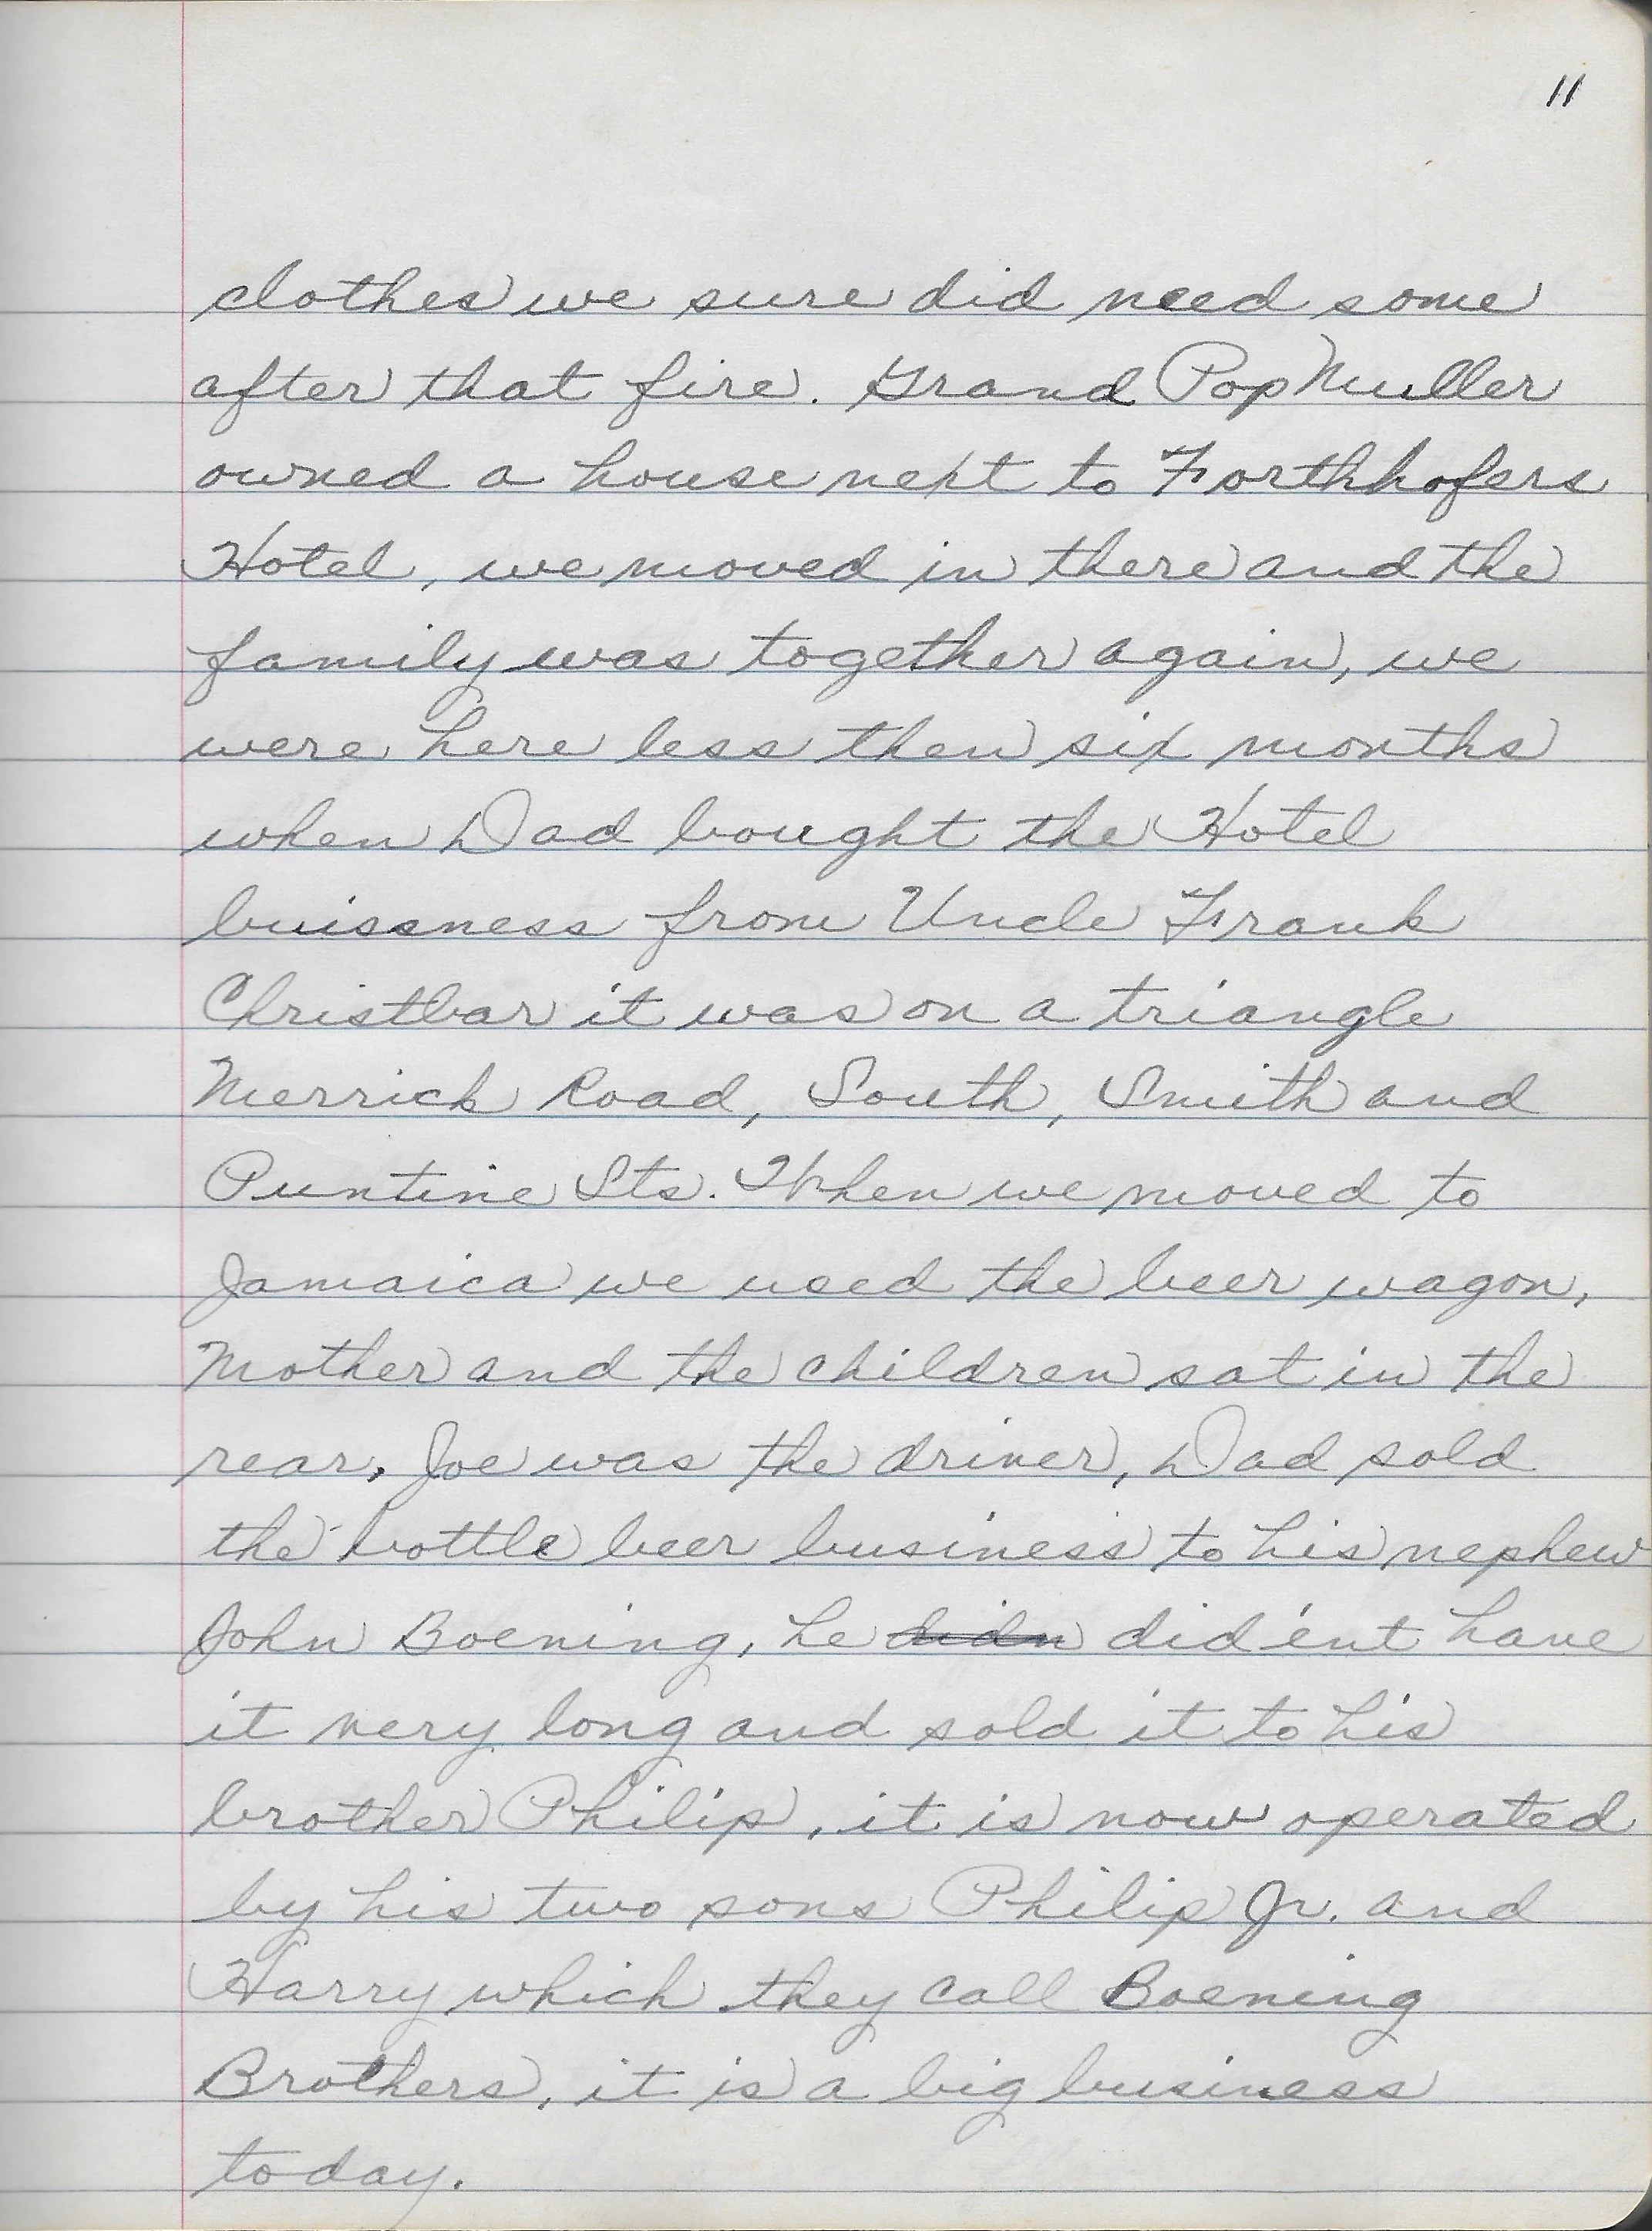 11
clothes we sure did need some
after that fire. Grand Pop Muller
owned a house next to Forthhofers
Hotel, we moved in there and the
family was together again, we
were here less then six months
when Dad bought the Hotel
buissness from Uncle Frank
Christbar it was on a triangle
Merrick Road, South, Smith and
Puntine Sts. When we moved to
Jamaica we used the beer wagon,
Mother and the children sat in the
rear, Joe was the driver, Dad sold
the bottle beer business to his nephew
John Boening, he didn did'ent have
it very long and sold it to his
brother Philip, it is now operated
by his two sons Philip Jr. and
Harry which they call Boening
Brothers, it is a big business
today.